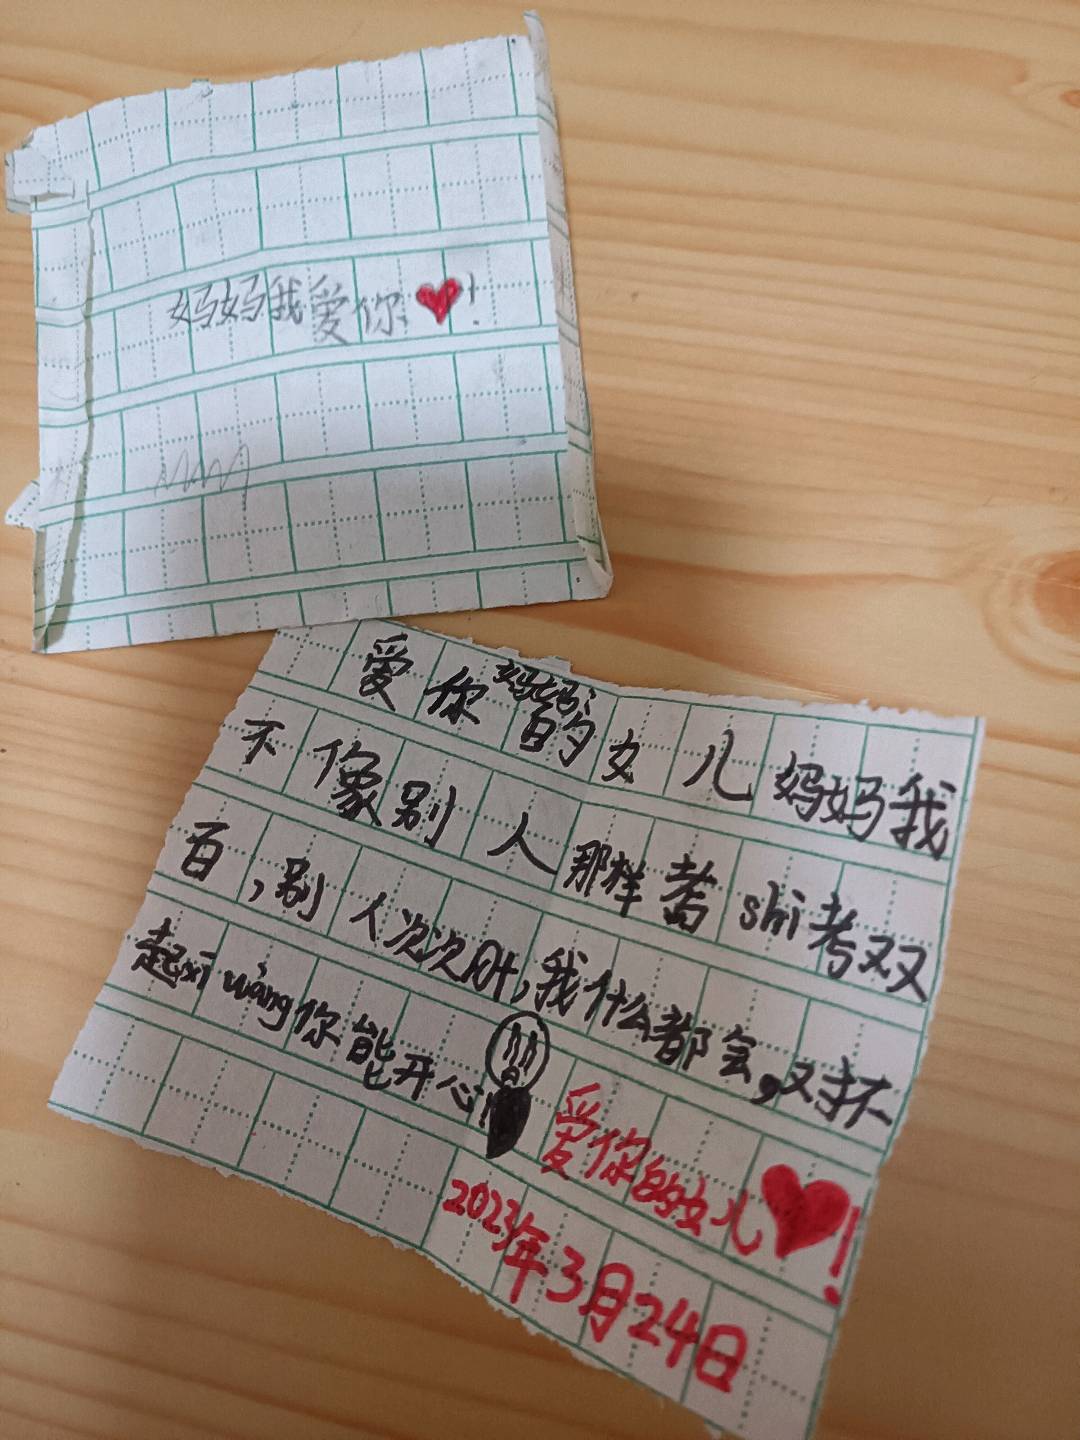 妈妈我爱你❤!
爱你妈妈的女儿妈妈我
不像别人那样考shi考双
百,别人次次,我什么都会,对不
起xī wàng你能开心!!
爱你的女儿❤!
2023年3月24日